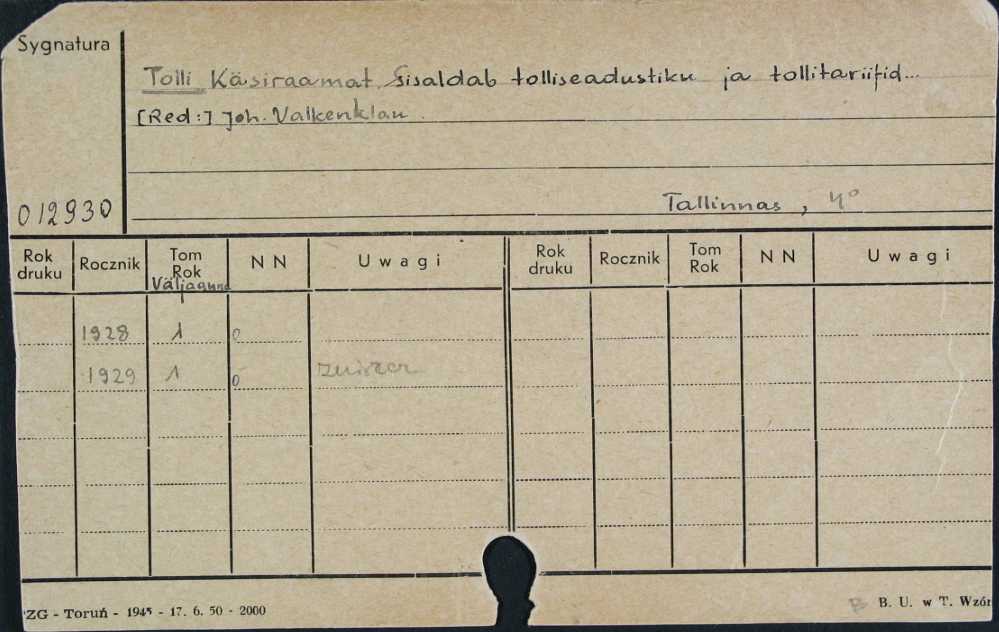 Sygnatura
Tolli Käsiraamat. Sisaldab tolliseadustiku ja tollitariifid...
[Red:] Joh. Valkenklau.
012930
Tallinnas, 4°
Rok druku Rocznik Tom Rok NN Uwagi Rok druku Rocznik Tom Rok NN Uwagi
Väljaanne
1928 1 0
1929 1 0
ZG - Toruń - 1945 - 17. 6. 50 - 2000
B. U. w T. Wzór